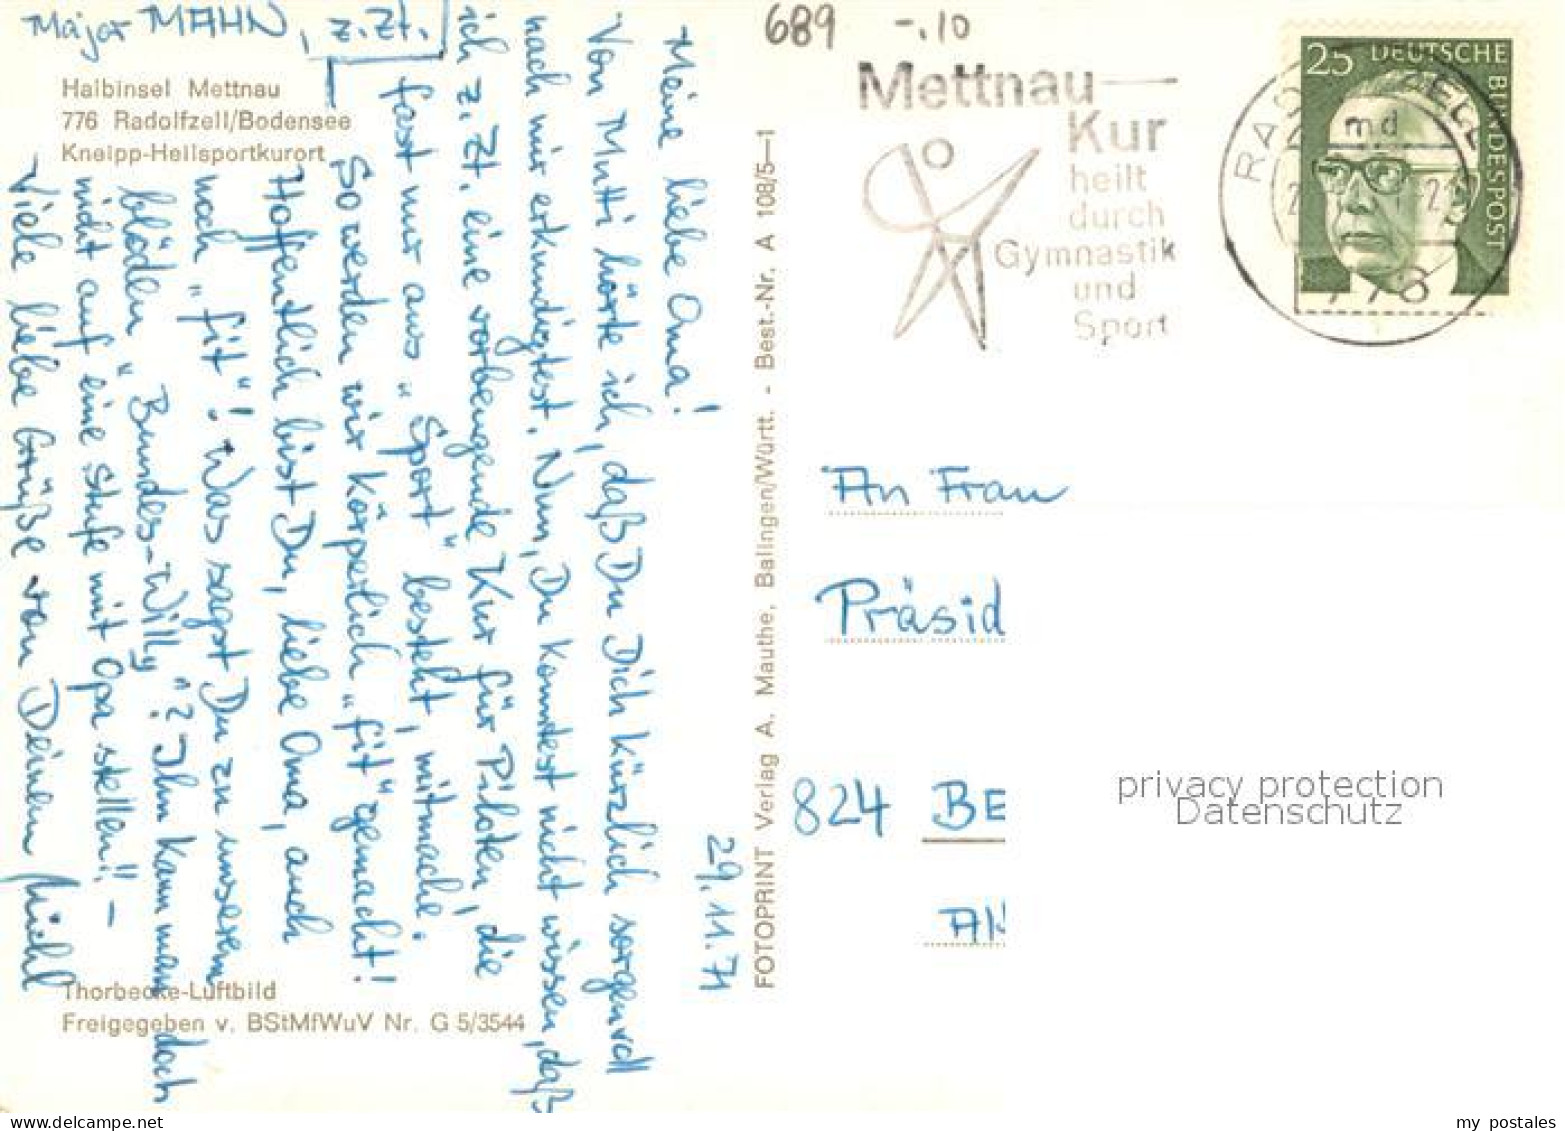 Major MAHN, z.Zt.
Halbinsel Mettnau
776 Radolfzell/Bodensee
Kneipp-Heilsportkurort
29.11.71
Meine liebe Oma!
Von Mutti hörte ich, daß Du Dich kürzlich sorgenvoll
nach mir erkundigtest. Nun, Du konntest nicht wissen, daß
ich z. Zt. eine vorbeugende Kur für Piloten, die
fast nur aus "Sport" besteht, mitmache.
So werden wir körperlich "fit" gemacht!
Hoffentlich bist Du, liebe Oma, auch
noch "fit"! Was sagst Du zu unserem
blöden "Bundes-Willy"? Ihn kann man doch
nicht auf eine Stufe mit Opa stellen!! -
Viele liebe Grüße von Deinem
Thorbecke-Luftbild
Freigegeben v. BStMfWuV Nr. G 5/3544
FOTOPRINT Verlag A. Mauthe, Balingen/Württ. - Best.-Nr. A 108/5—1
689 -.10
Mettnau
Kur
heilt
durch
Gymnastik
und
Sport
25 DEUTSCHE BUNDESPOST
md
778
An Frau
Präsid
824 BE
AK
privacy protection
Datenschutz
my postales